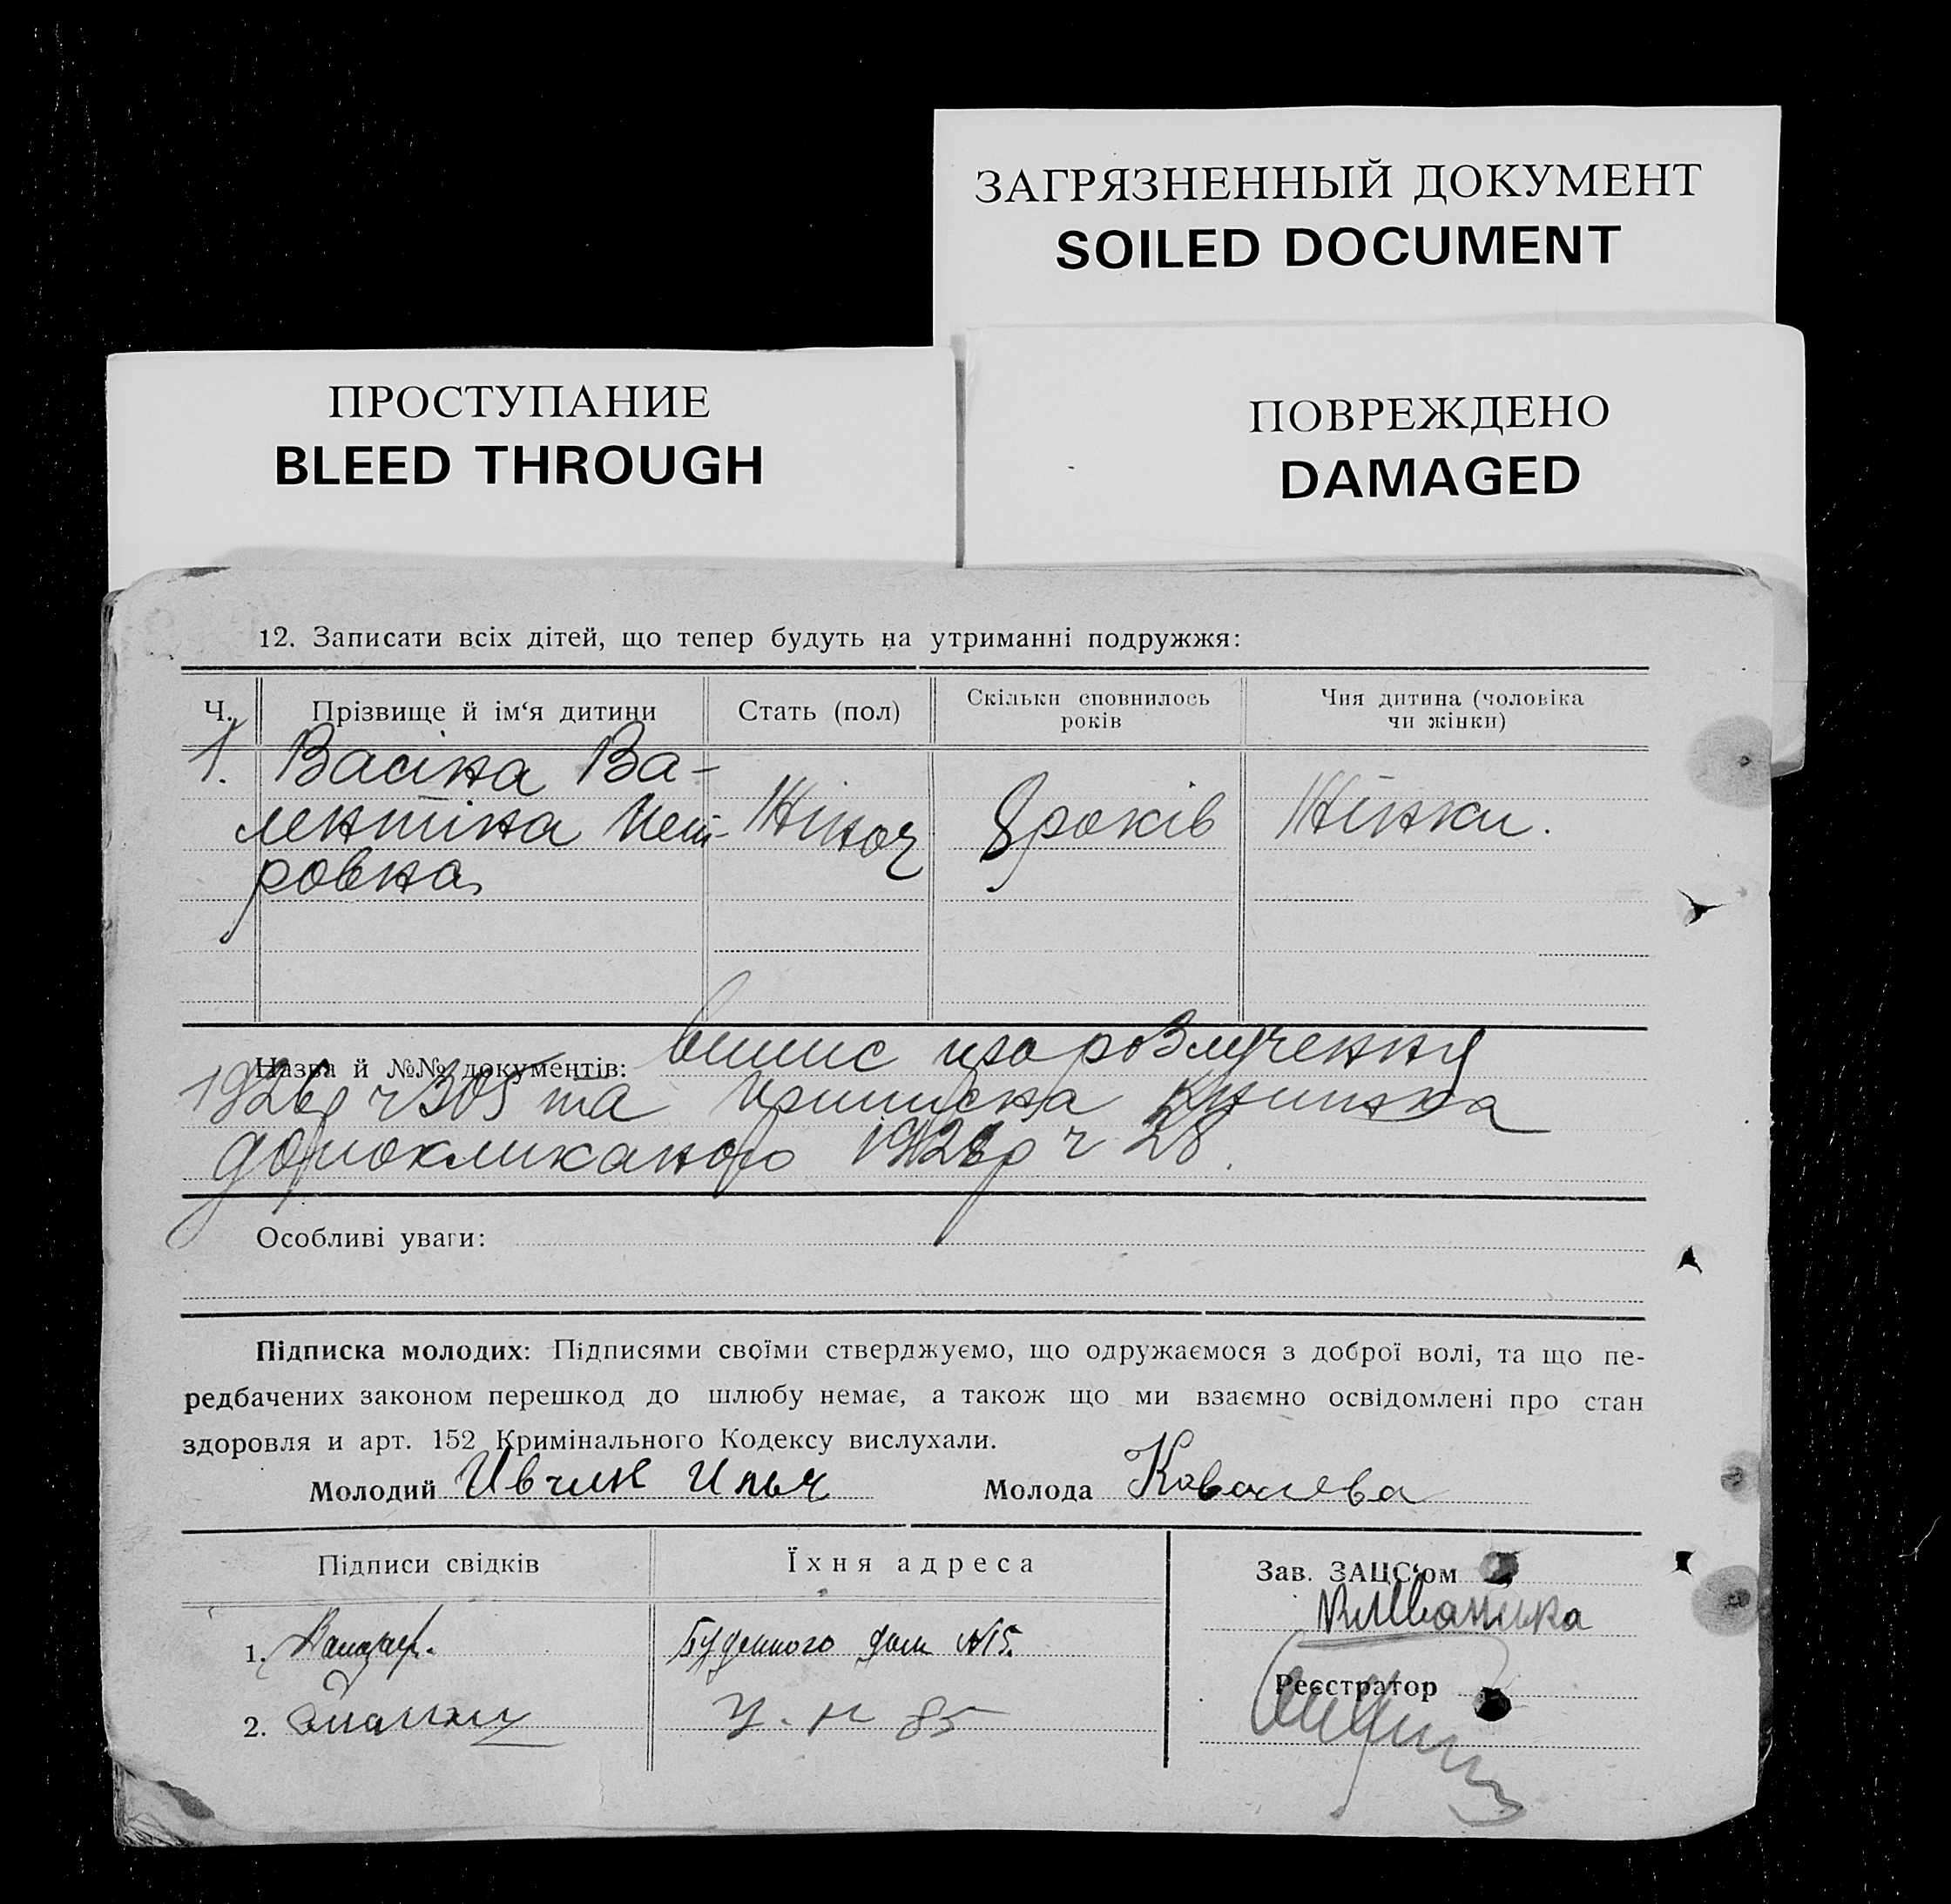 ЗАГРЯЗНЕННЫЙ ДОКУМЕНТ
SOILED DOCUMENT
ПРОСТУПАНИЕ
BLEED THROUGH
ПОВРЕЖДЕНО
DAMAGED
12. Записати всіх дітей, що тепер будуть на утриманні подружжя:
Ч. Прізвище й ім‘я дитини Стать (пол) Скільки сповнилось років Чия дитина (чоловіка чи жінки)
1. Васіна Ва-
лентіна Пет- Жіноч 8 років Жінки.
ровна
Назва й №№ документів: випис про розлучення
1926р ч 305 та приписна книжка
допокликаного 1928р ч 28.
Особливі уваги:
Підписка молодих: Підписями своїми стверджуємо, що одружаємося з доброї волі, та що пе-
редбачених законом перешкод до шлюбу немає, а також що ми взаємно освідомлені про стан
здоровля и арт. 152 Кримінального Кодексу вислухали.
Молодий Ивчик Илья Молода Ковалева
Підписи свідків Їхня адреса Зав. ЗАЦС‘ом
1. Буденного дом №15.
Реєстратор
2. 85